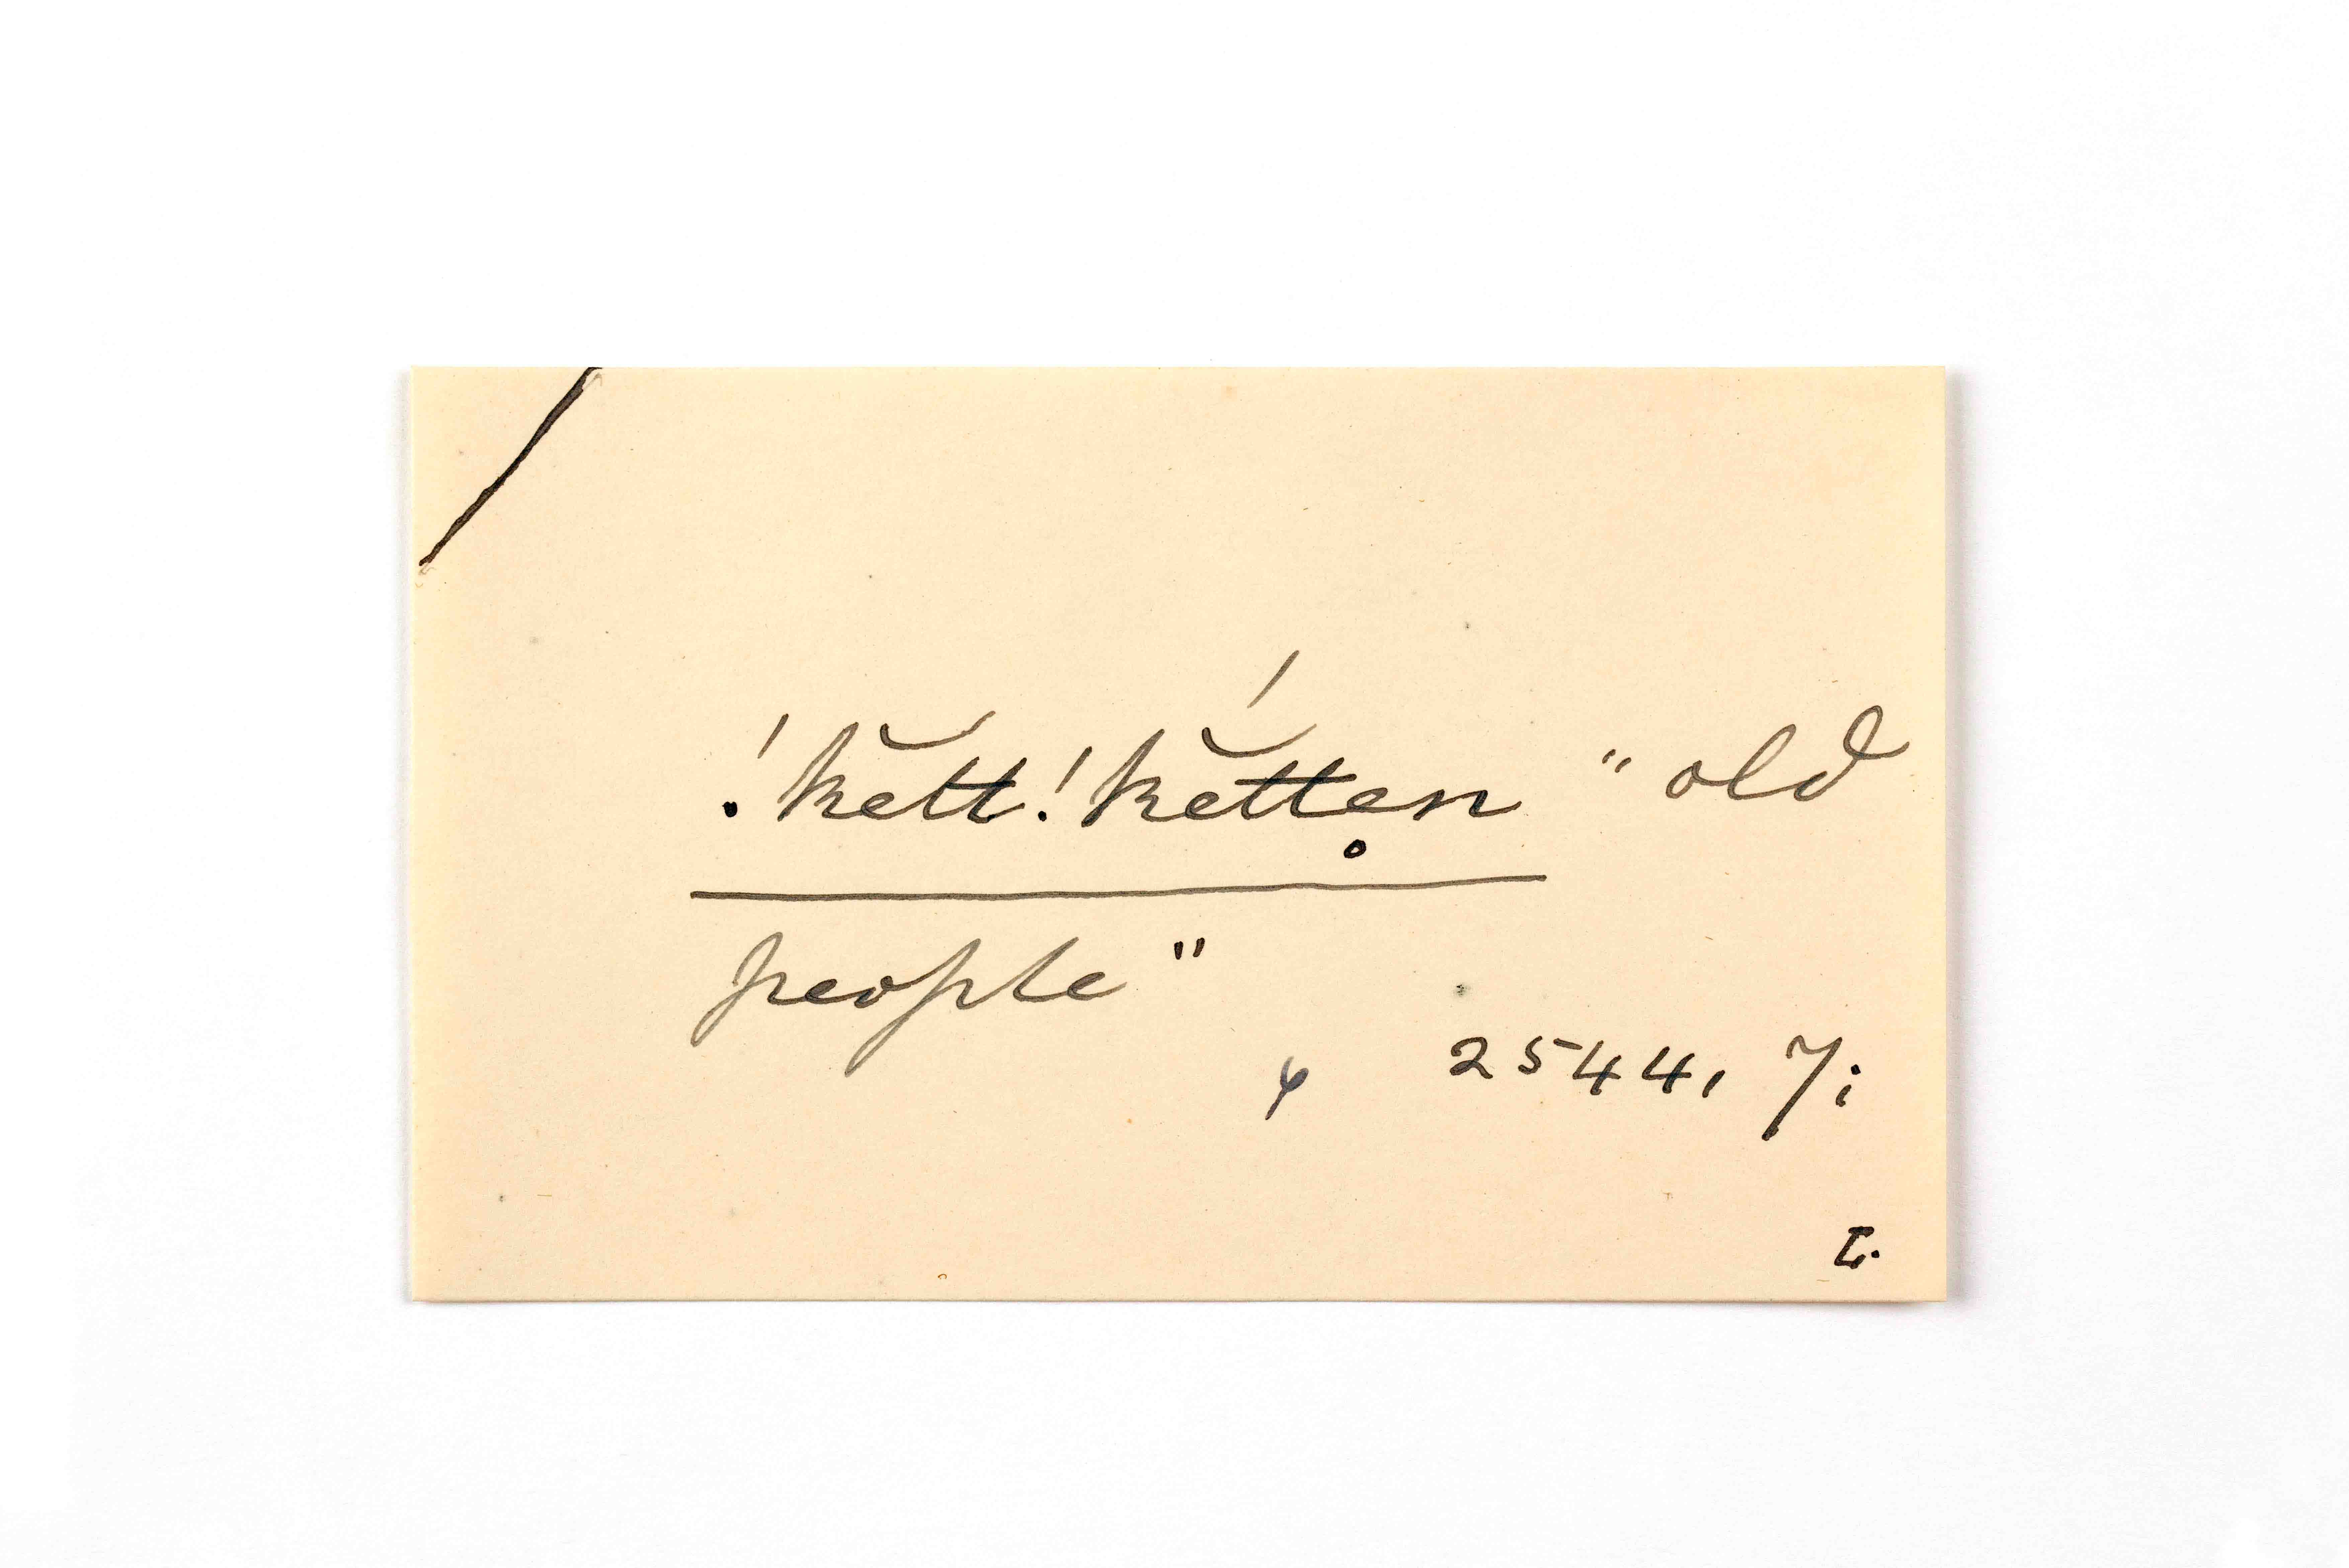 !kĕtt!kĕ́ttẹn "old
people"
2544, 7;
L.